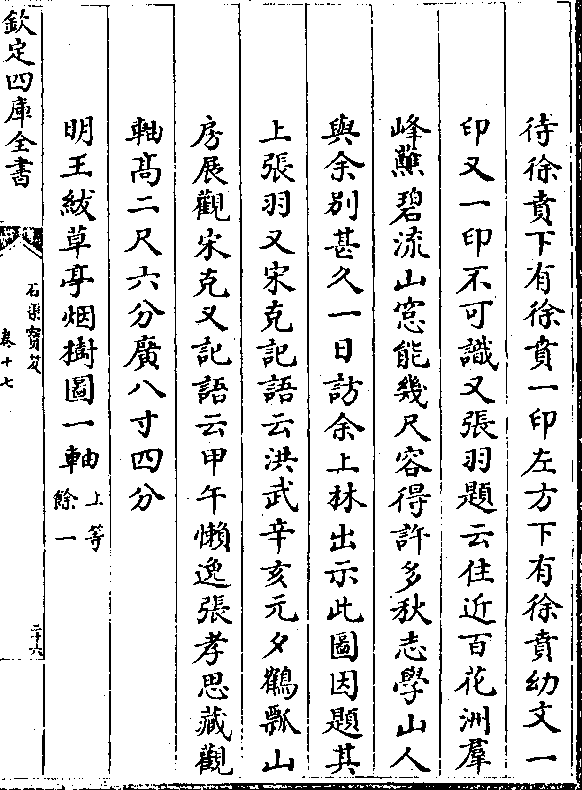 待徐賁下有徐賁一印左方下有徐賁幼文一
印又一印不可識又張羽題云住近百花洲羣
峰蘸碧流山窓能幾尺容得許多秋志學山人
與余别甚久一日訪余上林出示此圖因題其
上張羽又宋克記語云洪武辛亥元夕鶴瓢山
房展觀宋克又記語云甲午懶逸張孝思藏觀
軸髙二尺六分廣八寸四分
明王紱草亭烟樹圖一軸上等
餘一
欽定四庫全書
石渠寳笈
卷十七
二十六